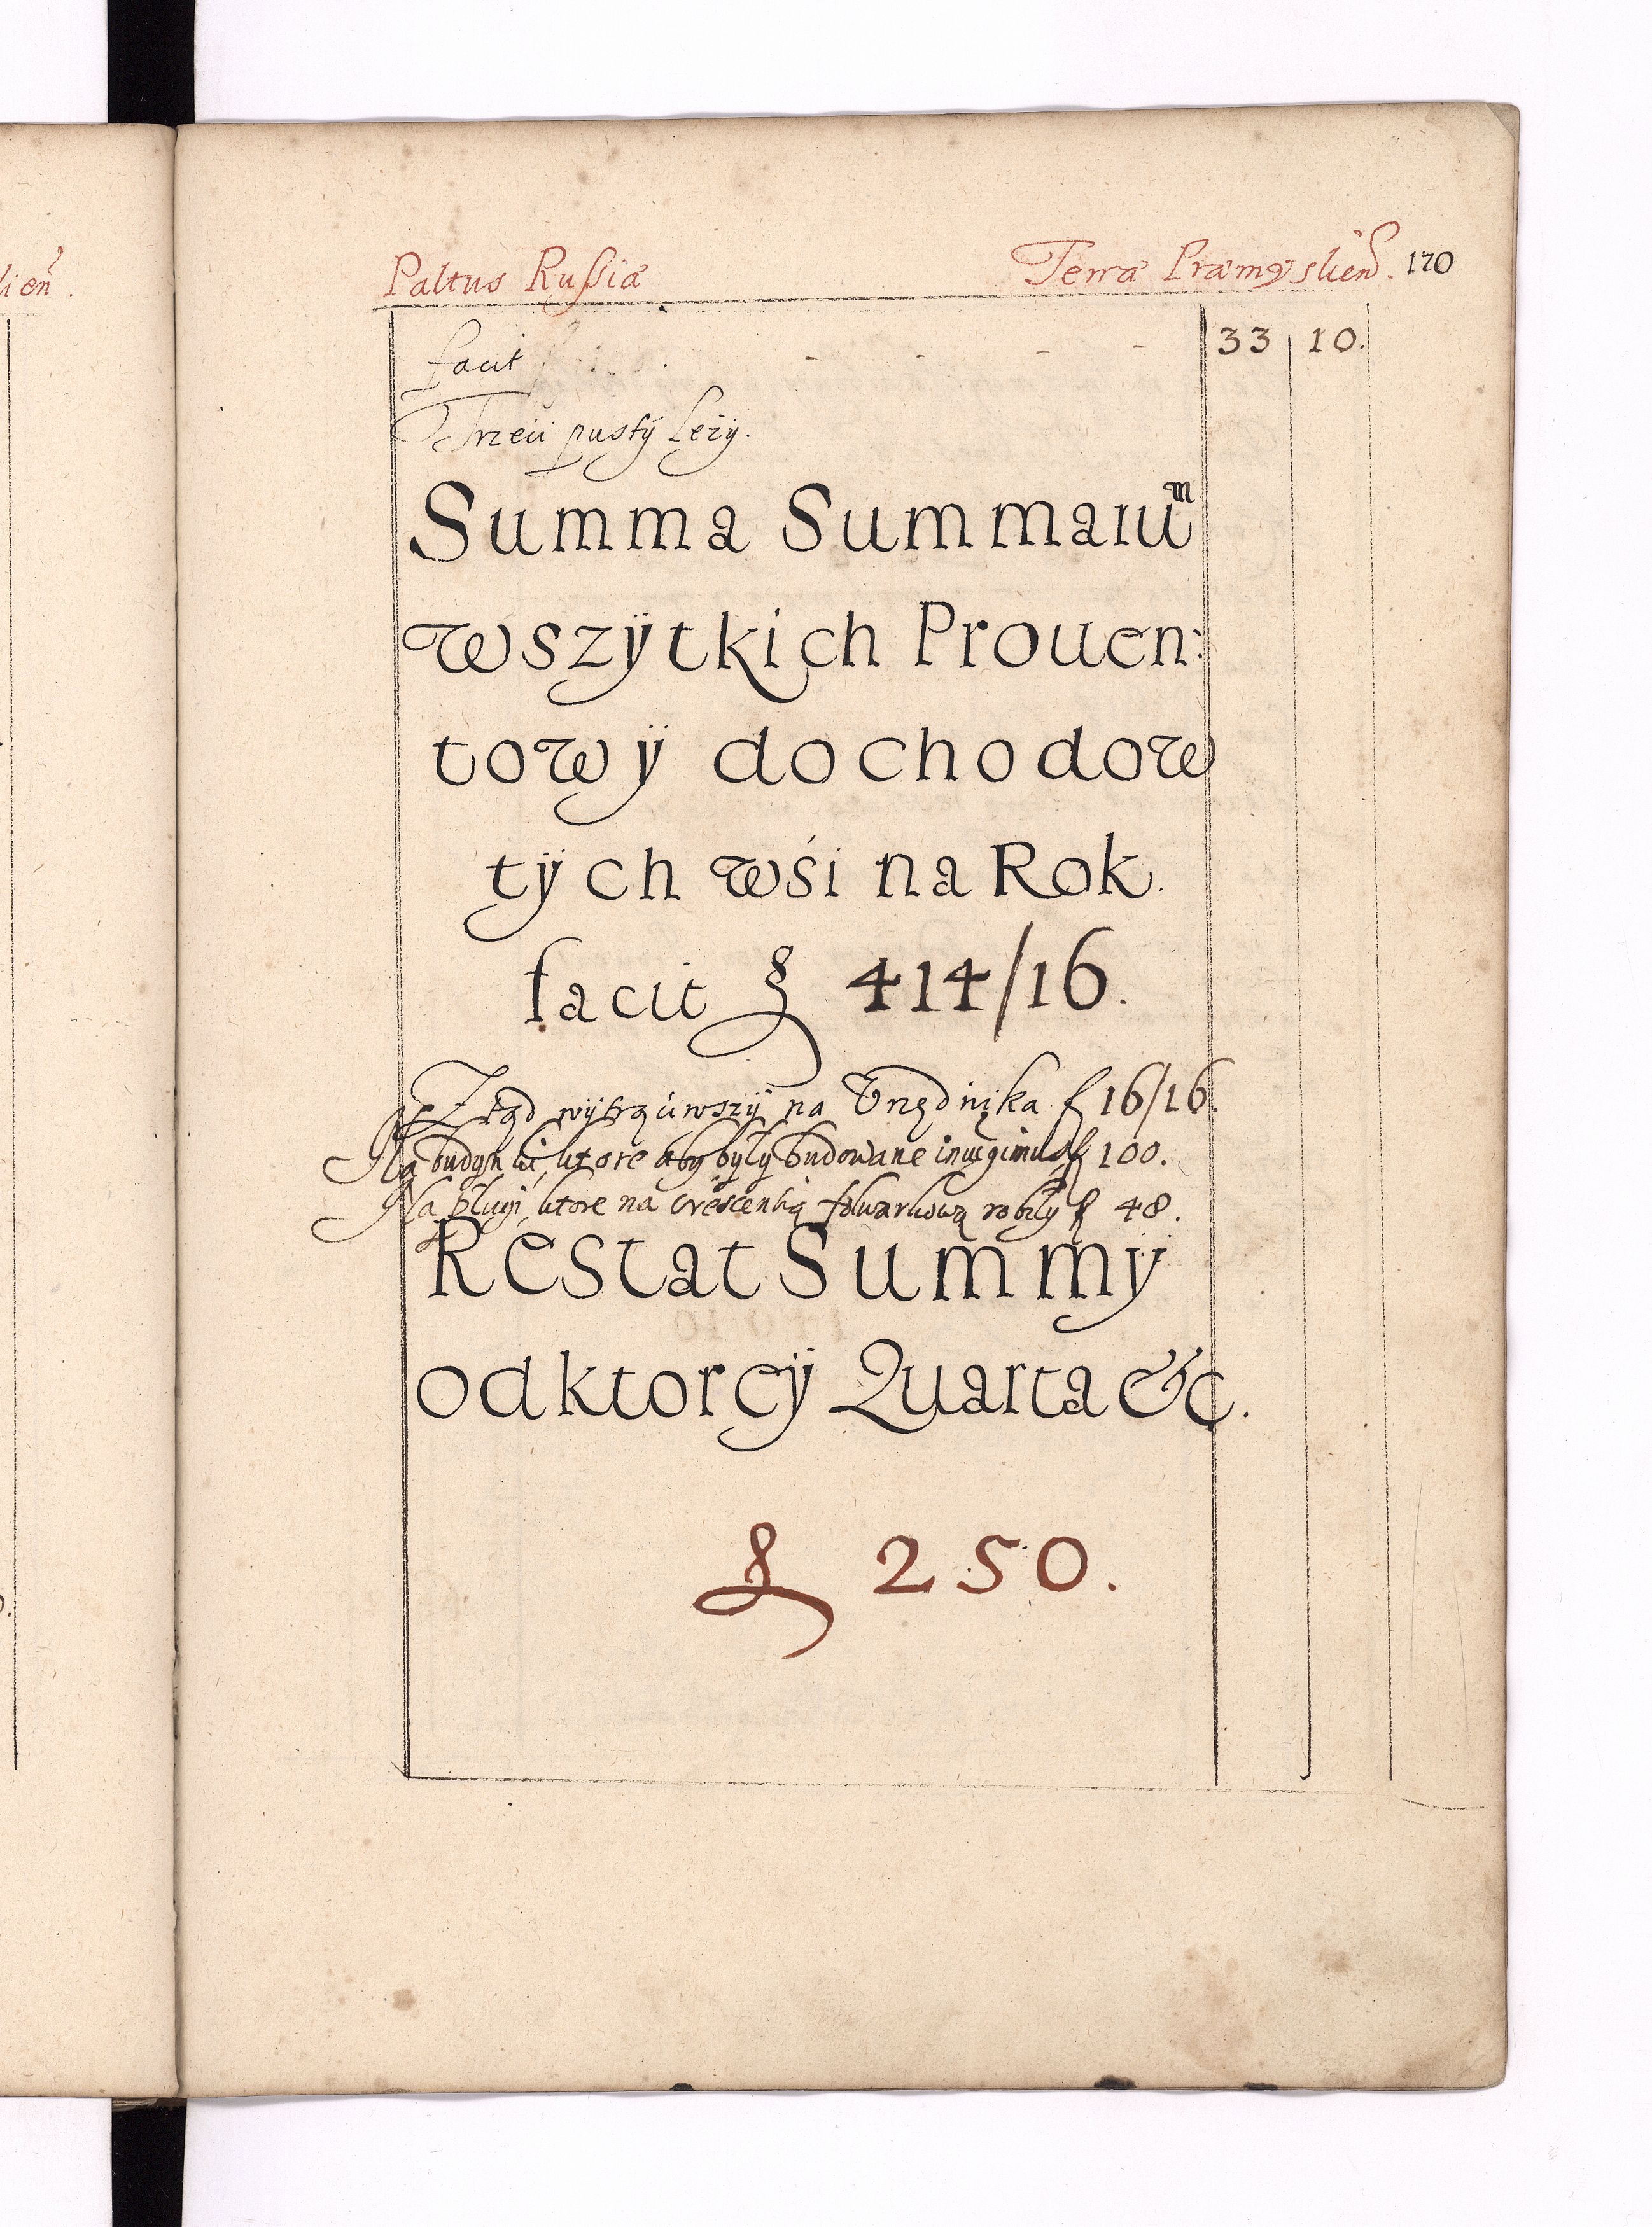 lień.
Paltus Rußiæ Terræ Præmyslień. 170
facit - - - - 33 10.
Trzeći pustÿ leżÿ.
Summa Summarū
wszÿtkich Prouen:
tow ÿ dochodow
tÿch wśi na Rok.
facit f 414/16.
Ztąd wÿtrąćiwszÿ na Vrzędnika f 16/16.
Na budynki, ktore aby były budowane iniungimus f 100.
Na pługi, ktore na crescentią folwarkową robiły f 48.
Restat Summÿ
od ktoreÿ Quarta &c.
f 250.